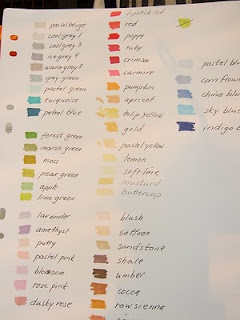 pastel beige
cool grey 1
cool grey 3
warm grey 2
gray green
pastel green
turquoise
petrol blue
forest green
marsh green
moss
pear green
apple
lime green
lavender
amethyst
putty
pastel pink
blossom
rose pink
dusky rose
lipstick red
red
poppy
ruby
crimson
carmine
pumpkin
apricot
tulip yellow
gold
pastel yellow
lemon
soft lime
mustard
buttercup
blush
saffron
sandstone
shale
umber
cocoa
raw sienna
pastel bl
corn flow
china blu
sky blu
indigo b